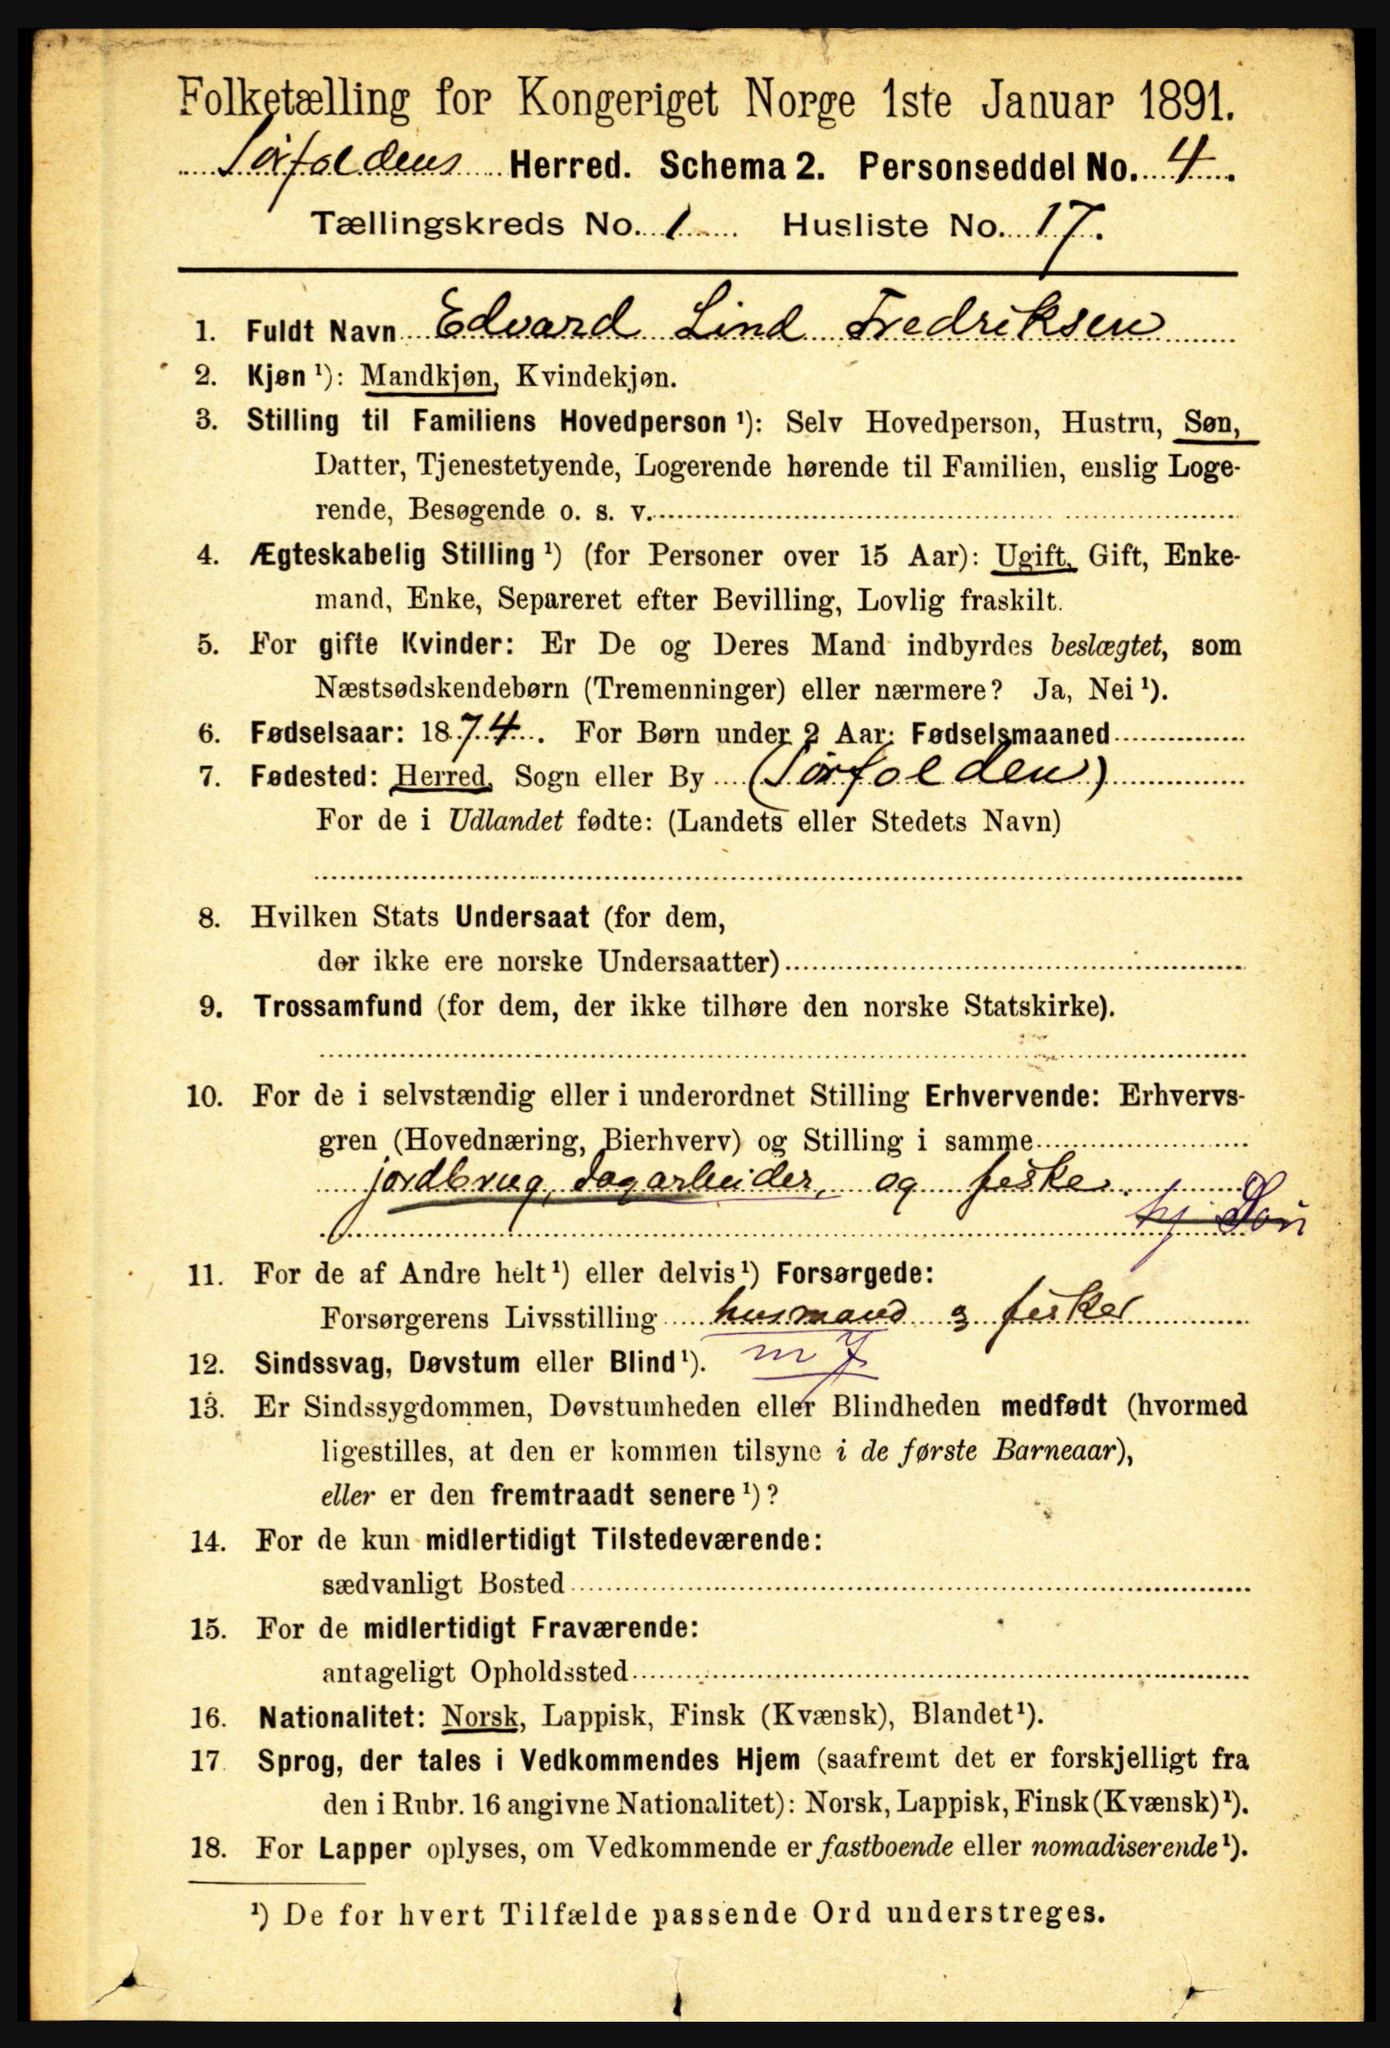 Folketælling for Kongeriget Norge 1ste Januar 1891.
Sørfoldens Herred. Schema 2. Personseddel No. 4.
Tællingskreds No. 1 Husliste No. 17.
1. Fuldt Navn Edvard Lind Fredriksen
2. Kjøn ¹): Mandkjøn, Kvindekjøn.
3. Stilling til Familiens Hovedperson ¹): Selv Hovedperson, Hustru, Søn,
Datter, Tjenestetyende, Logerende hørende til Familien, enslig Loge-
rende, Besøgende o. s. v.
4. Ægteskabelig Stilling ¹) (for Personer over 15 Aar): Ugift, Gift, Enke-
mand, Enke, Separeret efter Bevilling, Lovlig fraskilt.
5. For gifte Kvinder: Er De og Deres Mand indbyrdes beslægtet, som
Næstsødskendebørn (Tremenninger) eller nærmere? Ja, Nei ¹).
6. Fødselsaar: 1874. For Børn under 2 Aar: Fødselsmaaned
7. Fødested: Herred, Sogn eller By (Sørfolden)
For de i Udlandet fødte: (Landets eller Stedets Navn)
8. Hvilken Stats Undersaat (for dem,
der ikke ere norske Undersaatter)
9. Trossamfund (for dem, der ikke tilhøre den norske Statskirke).
10. For de i selvstændig eller i underordnet Stilling Erhvervende: Erhvervs-
gren (Hovednæring, Bierhverv) og Stilling i samme
jordbrug, dagarbeider, og fisker.
hj Søn
11. For de af Andre helt ¹) eller delvis ¹) Forsørgede:
Forsørgerens Livsstilling husmand og fisker
12. Sindssvag, Døvstum eller Blind ¹). m J
13. Er Sindssygdommen, Døvstumheden eller Blindheden medfødt (hvormed
ligestilles, at den er kommen tilsyne i de første Barneaar),
eller er den fremtraadt senere ¹)?
14. For de kun midlertidigt Tilstedeværende:
sædvanligt Bosted
15. For de midlertidigt Fraværende:
antageligt Opholdssted
16. Nationalitet: Norsk, Lappisk, Finsk (Kvænsk), Blandet ¹).
17 Sprog, der tales i Vedkommendes Hjem (saafremt det er forskjelligt fra
den i Rubr. 16 angivne Nationalitet): Norsk, Lappisk, Finsk (Kvænsk) ¹).
18. For Lapper oplyses, om Vedkommende er fastboende eller nomadiserende ¹).
¹) De for hvert Tilfælde passende Ord understreges.